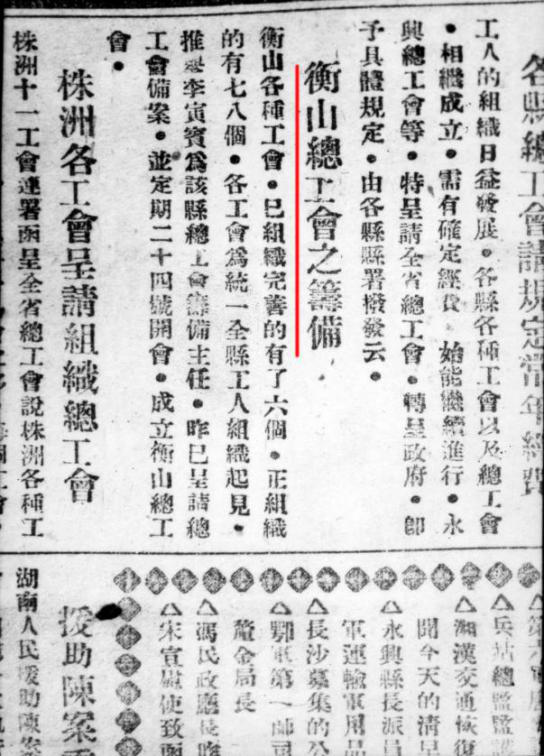 各縣總工會請規定常年經費
工人的組織日益發展●各縣各種工會以及總工會
●相繼成立●需有確定經費 始能繼續進行●永
興總工會等●特呈請全省總工會●轉呈政府●卽
予具體規定●由各縣縣署撥發云●
衡山總工會之籌備
衡山各種工會●已組織完善的有了六個●正組織
的有七八個●各工會爲統一全縣工人組織起見●
推舉李寅賓爲該縣總工會籌備主任●昨已呈請總
工會備案●並定期二十四號開會●成立衡山總工
會●
株洲各工會呈請組織總工會
株洲十一工會連署函呈全省總工會說株洲各種工
△
兵站總監
△湘漢交通恢復
聞今天的淸
△永興縣長派
軍運輸軍用
△長沙募集的公
△鄂軍第一師司
釐金局長
△馮民政廳長昨
△宋宣慰使致函
援助陳案
湖南人民援助陳案